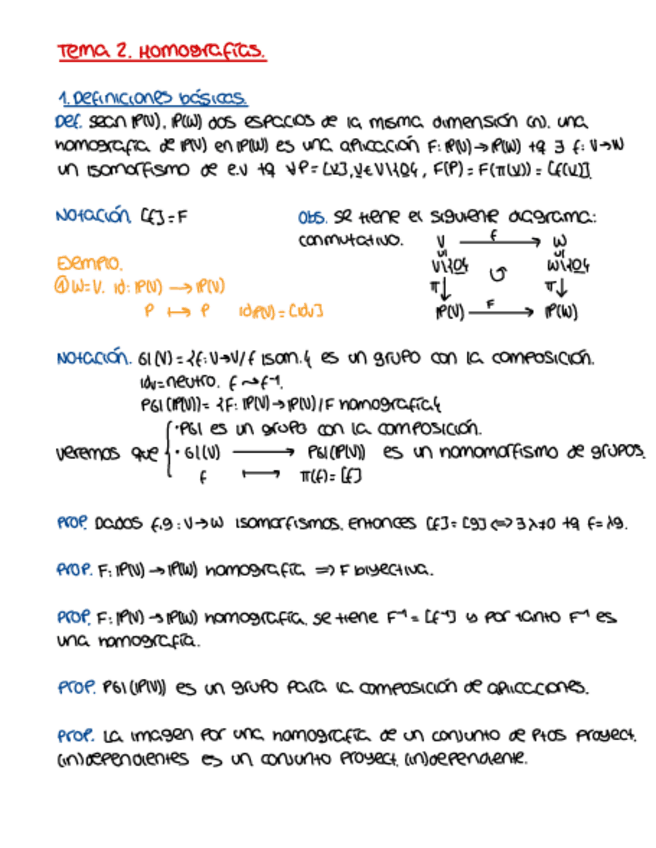 Tema 2. Homografías.
1. Definiciones básicas.
Def. sean P(V), P(W) dos espacios de la misma dimensión (n). una
homografía de P(V) en P(W) es una aplicación F: P(V) → P(W) tq ∃ f: V → W
un isomorfismo de e.v tq ∀P = [v], v ∈ V\{0}, F(P) = F(π(v)) = [f(v)].
Notación. [f] = F
Obs. se tiene el siguiene diagrama:
conmutativo.
V f W
V\{0} ↺ W\{0}
π↓ π↓
P(V) F→ P(W)
Ejemplo.
① W=V. id: P(V) → P(V)
P ↦ P id_P(V) = [id_V]
Notación. Gl(V) = {f: V→V / f isom.} es un grupo con la composición.
id_V = neutro. f ⤳ f⁻¹.
PGl(P(V)) = {F: P(V) → P(V) / F homografía}
veremos que { · PGl es un grupo con la composición.
· Gl(V) → PGl(P(V)) es un homomorfismo de grupos.
f ↦ π(f) = [f]
Prop. Dados f, g: V → W isomorfismos, entonces [f] = [g] ⟺ ∃ λ≠0 tq f = λg.
Prop. F: P(V) → P(W) homografía ⟹ F biyectiva.
Prop. F: P(V) → P(W) homografía, se tiene F⁻¹ = [f⁻¹] y por tanto F⁻¹ es
una homografía.
Prop. PGl(P(V)) es un grupo para la composición de aplicaciones.
Prop. La imagen por una homografía de un conjunto de ptos proyect.
(in)dependientes es un conjunto proyect. (in)dependiente.